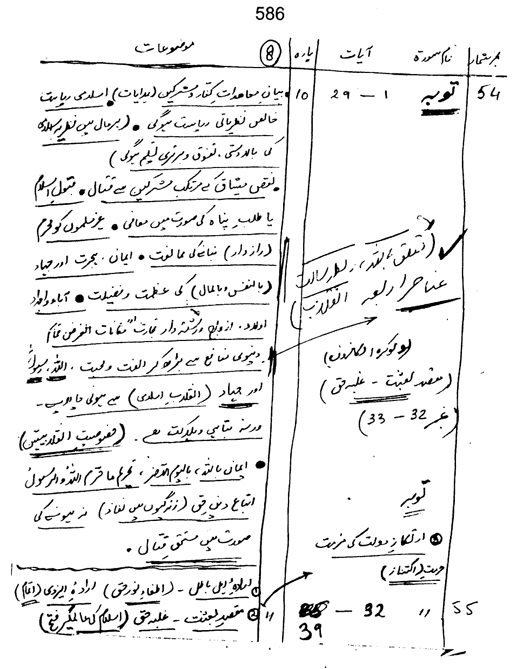 586
نمبر شمار نام سورۃ آیات پارہ 8 موضوعات
54 توبہ 1 – 29 10 • بیان معاہدات کفار و مشرکین (ہدایات) • اسلامی ریاست
خالص نظریاتی ریاست ہوگی • (بہرحال میں نظریہ
کی بالادستی، تفوق و برتری تسلیم ہوگی)
• نقض میثاق کے مرتکب مشرکین سے قتال • قبول اسلام
یا طلب پناہ کی صورت میں معافی • غیر مسلموں کو محرم
(راز دار) بنانے کی ممانعت • ایمان، ہجرت اور جہاد
(بالنفس و بالمال) کی عظمت و فضیلت • آباء و اجداد
اولاد، ازواج و رشتہ دار تجارت مکانات الغرض تمام
دنیوی منافع سے بڑھ کر الفت و محبت، اللہ، رسولؐ
اور جہاد (انقلاب اسلامی) سے ہونی چاہیے۔
ورنہ تباہی و ہلاکت ہے۔
• ایمان باللہ، بالیوم الآخر، تحریم ما حرم اللہ والرسول
اتباع دین حق (زندگیوں میں نفاذ) نہ ہونے کی
صورت میں مستحق قتال۔
(تعلق باللہ،
عناصر اربعہ انقلاب)
(مقصد بعثت – غلبہ حق)
(نمبر 32 – 33)
توبہ
ارتکاز دولت کی حرمت
حرمت (اکتناز)
55 " 32 – 39 " ① ارادۂ اہل باطل – (اطفاء نور حق) ارادۂ ایزدی (اتمام)
② مقصد بعثت – غلبہ حق (اسلام کی عالمگیر فتح)